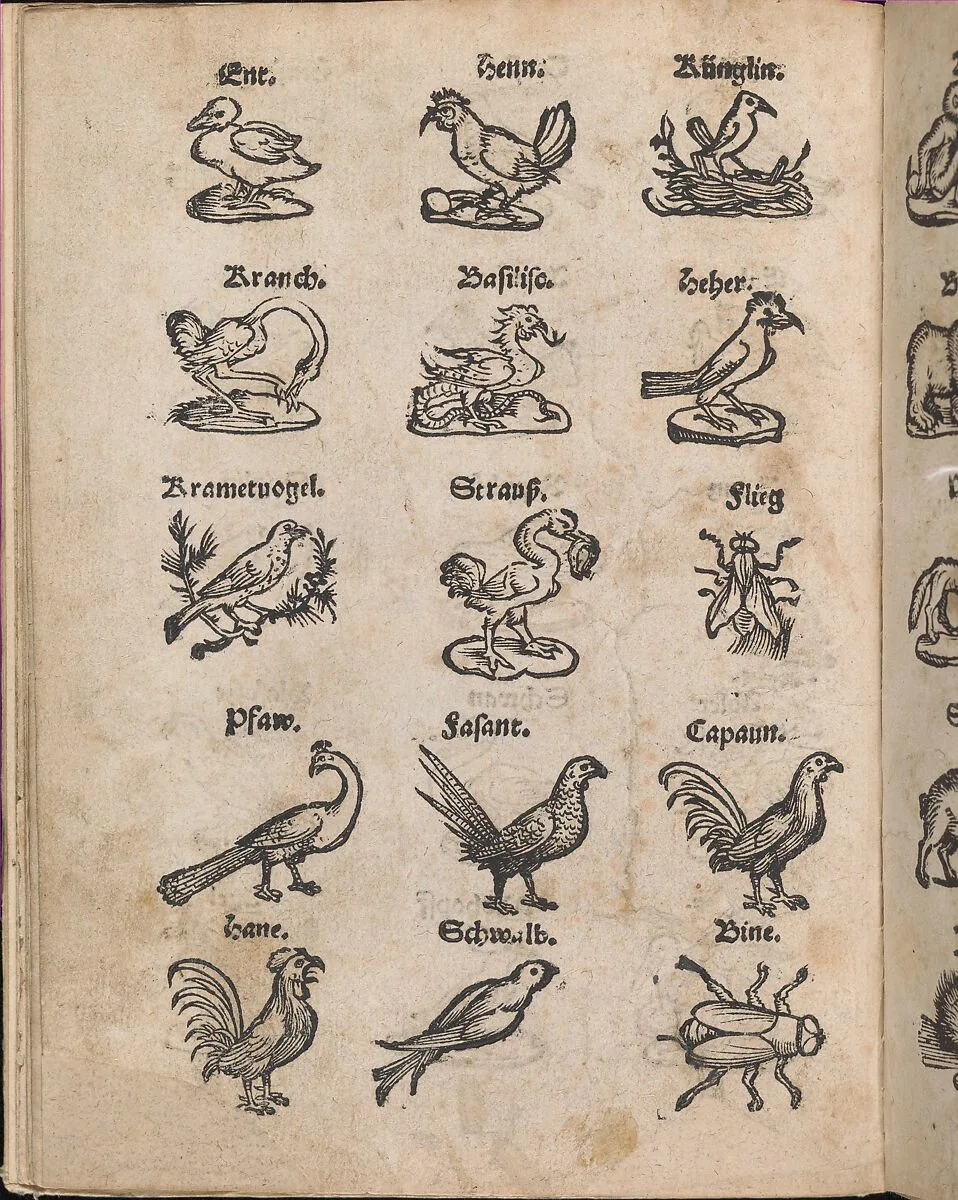 Ent.
Henn.
Künglin.
Kranch.
Basilisc.
Heher.
Krametvogel.
Strauß.
Flieg
Pfaw.
Fasant.
Capaun.
Hane.
Schwalb.
Bine.